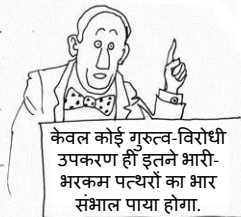 केवल कोई गुरुत्व-विरोधी
उपकरण ही इतने भारी-
भरकम पत्थरों का भार
संभाल पाया होगा.